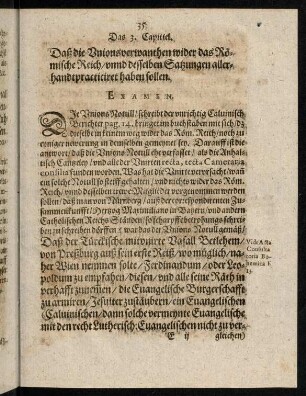 35
Das 3. Capittel.
Daß die Vnionsverwanthen wider das Rö-
mische Reich / vnnd desselben Satzungen aller-
handt practiciret haben sollen.
EXAMEN.
DIe Vnions Notull / schreibt der vnrichtig Caluinisch
Berichter pag. 14. bringet im buchstaben mit sich / dz
dieselb in keinen weg wider das Röm. Reich / noch zu
einiger newerung in demselben gemeynet sey. Darauff ist die
antwort / daß die Vnions Notull eher verfasset / als die Anhalti-
nisch Canceley / vnd alle der Vnirten secreta & Cameraria
consilia funden worden. Was hat die Vnirte verursacht / wañ
solche Notull so steiff gehalten / vnd nichts wider das Röm.
Reich / vnnd desselben trewe Magistrat vorgenommen werden
sollen / daß man von Nürnberg / auß der correspondirenten Zu-
sammenkunfft / Hertzog Maximiliano in Bayern / vnd andern
Catholischen Reichs Ständen / solche harte betrohungs schriff-
ten zu schreiben dörffen? was das der Vnions Notull gemäß /
Daß der Türckische meinaydige Vasall Betlehem /
von Preßburg auß sein erste Reiß / wo müglich / na-
her Wien nemmen solte / Ferdinandum / oder Leo-
poldum zu empfahen / dasselbsten / vnd alle seine Räth in
verhafft zunemen / die Euangelische Burgerschafft
zu armiren / Jesuiter zustäubern / ein Euangelischen
(Caluinischen / dann solche vermeynte Euangelische
mit den recht Lutherisch: Euangelischen nicht zu ver-
E ij gleichen)
Vide Acta
Consulta-
toria Bo-
hemica f.
13.